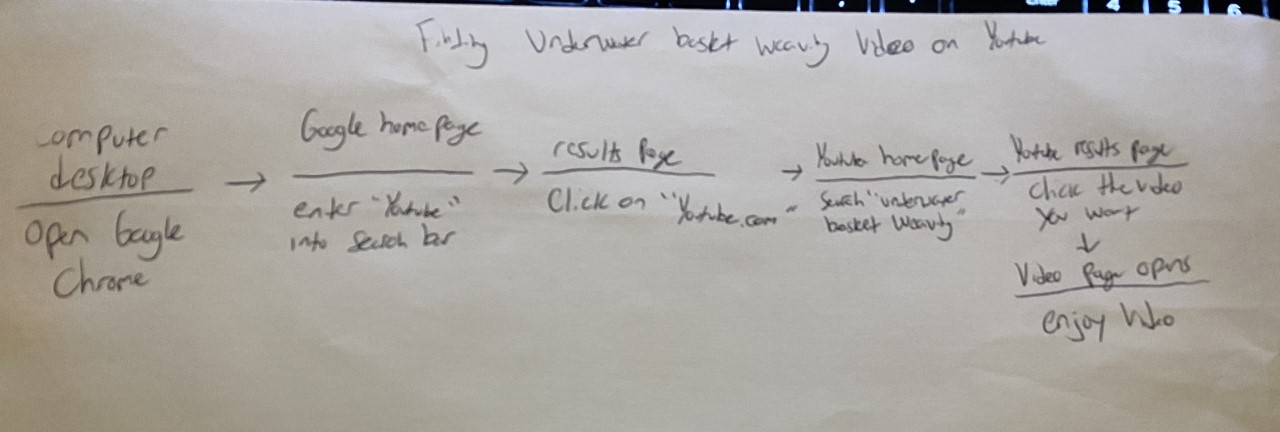 Finding Underwater basket weaving Video on Youtube
computer
desktop
open Google
Chrome
→
Google homepage
enter "Youtube"
into Search bar
→
results Page
Click on "Youtube.com"
→
Youtube homepage
Search "underwater
basket weaving"
→
Youtube results page
Click the video
you want
↓
Video page opens
enjoy video
4 5 6